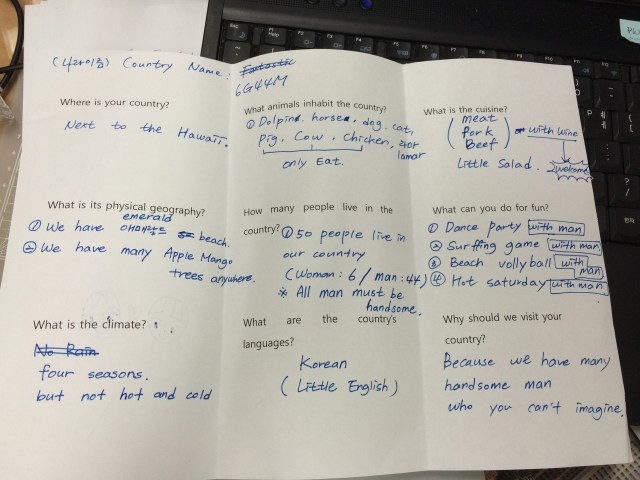 (나라이름) Country Name:
Fantastic
6G44M
Where is your country?
Next to the Hawaii.
What animals inhabit the country?
① Dolpin. horse. dog. cat,
pig. Cow. Chicken,
only Eat.
What is the cuisine?
meat
Pork
Beef
with wine
Little Salad.
welcome
What is its physical geography?
① We have emerald beach.
② We have many Apple Mango
trees anywhere.
How many people live in the
country? ① 50 people live in
our country
(Woman: 6 / man: 44)
※ All man must be
handsome.
What can you do for fun?
① Dance party with man
② Surffing game with man
③ Beach vollyball with man
④ Hot saturday with man
What is the climate?
No Rain
four seasons.
but not hot and cold
What are the country's
languages?
Korean
(Little English)
Why should we visit your
country?
Because we have many
handsome man
who you can't imagine.